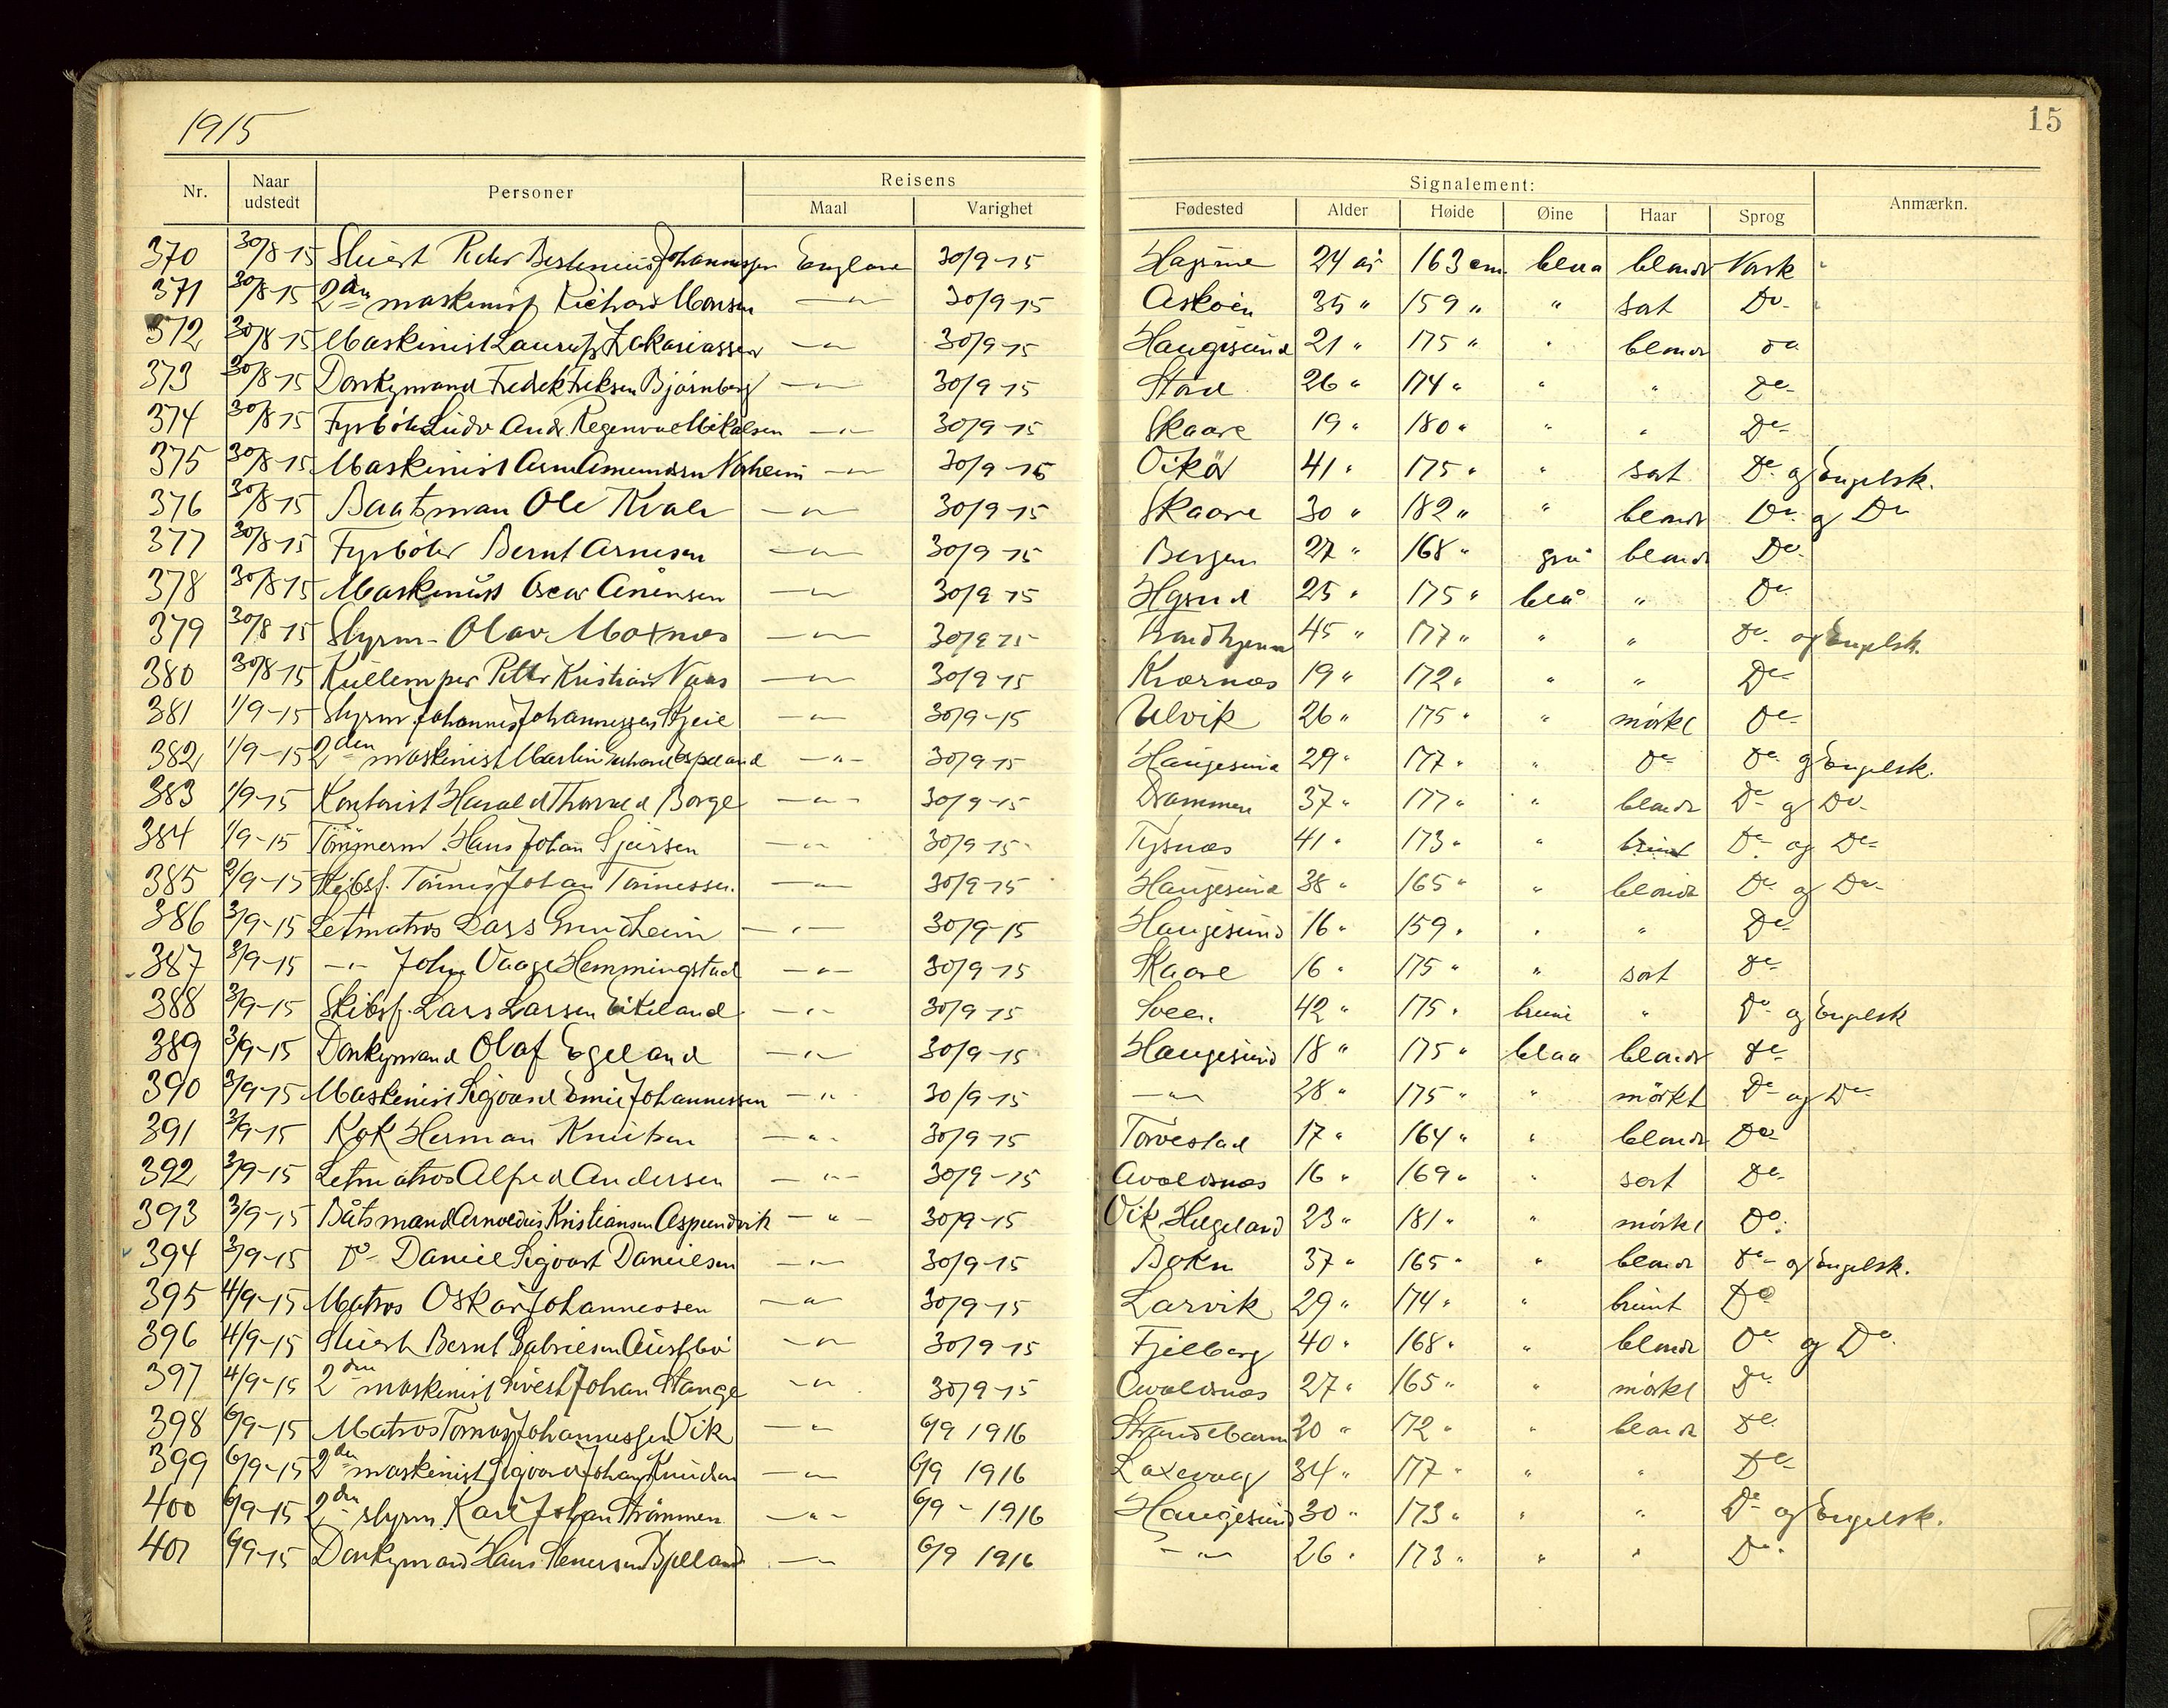 1915
15
Nr. Naar udstedt Personer Reisens Maal Varighet Signalement: Fødested Alder Høide Øine Haar Sprog Anmærkn.
370 30/8-15 Stuert Peder Johannessen England 30/9-15 24 år 163 cm. blaa blondt Norsk
371 30/8-15 2den maskinist Richard Monsen -"- 30/9-15 Askøen 35 " 159 " " sort Do-
372 30/8-15 Maskinist Lauritz Zakariassen -"- 30/9-15 Haugesund 21 " 175 " " blondt do
373 30/8-15 Donkymand Fredrik Bjørnberg -"- 30/9-15 Stord 26 " 174 " " " Do-
374 30/8-15 Fyrbøter Ludv Andr. Regenvald Mikalsen -"- 30/9-15 Skaare 19 " 180 " " " Do-
375 30/8-15 Maskinist Arne Amundsen Norheim -"- 30/9-15 41 " 175 " " sort Do. og Engelsk.
376 30/8-15 Baatsman Ole Kvale -"- 30/9-15 Skaare 30 " 182 " " blondt Do og Do
377 30/8-15 Fyrbøter Bernt Arnesen -"- 30/9-15 Bergen 27 " 168 " grå blondt Do-
378 30/8-15 Maskinist Oscar -"- 30/9 15 Hgsund 25 " 175 " blå " Do
379 30/8-15 Styrm- Olav Moxnes -"- 30/9 15 Trondhjem 45 " 177 " " " Do. og Engelsk.
380 30/8-15 Kullemper Petter Kristian -"- 30/9-15 19 " 172 " " " Do-
381 1/9-15 Styrm. Johannes Johannessen -"- 30/9-15 Ulvik 26 " 175 " " mörkt Do-
382 1/9-15 2den maskinist Martin Espeland -"- 30/9-15 Haugesund 29 " 177 " " Do- Do. og Engelsk.
383 1/9-15 Kontorist Harald Thorvald Borge -"- 30/9-15 Drammen 37 " 177 " " blondt Do- og Do-
384 1/9-15 Tömmerm Hans Johan Sjursen -"- 30/9-15 Tysnæs 41 " 173 " " brunt Do- og Do-
385 2/9-15 Skibsf. Tönnes Johan Tönnessen. -"- 30/9-15 Haugesund 38 " 165 " " blondt Do og Do-
386 3/9-15 Letmatros Lars -"- 30/9-15 Haugesund 16 " 159 " " " Do-
387 3/9-15 -"- John Vaage Hemmingstad -"- 30/9-15 Skaare 16 " 175 " " sort do-
388 3/9-15 Skibsf. Lars Larsen Eikeland -"- 30/9-15 Sveen. 42 " 175 " brune " Do- og Engelsk
389 3/9-15 Donkymand Olaf Egeland -"- 30/9-15 Haugesund 18 " 175 " blaa blondt do-
390 3/9-15 Maskinist Sigvard Emil Johannessen -"- 30/9-15 -"- 28 " 175 " " mörkt Do- og Do-
391 3/9-15 Kok Herman Knutsen -"- 30/9-15 Torvestad 17 " 164 " " blondt Do-
392 3/9-15 Letmatros Alfred Andersen -"- 30/9-15 Avaldsnæs 16 " 169 " " sort Do-
393 3/9-15 Båtsmand Arnoldus Kristiansen Aspundvik -"- 30/9-15 Vik Helgeland 23 " 181 " " mörkt Do:
394 3/9-15 Do- Daniel Sigvart Danielsen -"- 30/9-15 Bokn 37 " 165 " " blondt Do- og Engelsk.
395 4/9-15 Matros Oskar Johannessen -"- 30/9-15 Larvik 29 " 174 " " brunt Do
396 4/9-15 Stuert Bernt Gabrielsen Austbö -"- 30/9-15 Fjelberg 40 " 168 " " blondt Do og Do.
397 4/9-15 2den maskinist Sivert Johan Stange -"- 30/9-15 Avaldsnæs 27 " 165 " " mörkt Do
398 6/9-15 Matros Tomas Johannessen Vik -"- 6/9 1916 Strandebarm 30 " 172 " " blondt Do
399 6/9-15 2den maskinist Sigvard Johan Knudsen -"- 6/9 1916 Laxevaag 34 " 177 " " " Do-
400 6/9-15 2den styrm. Karl Johan Strömmen -"- 6/9-1916 Haugesund 30 " 173 " " " Do- og Engelsk.
401 6/9-15 Donkymand Hans Stenersen Bjelland -"- 6/9 1916 -"- 26 " 173 " " " Do.